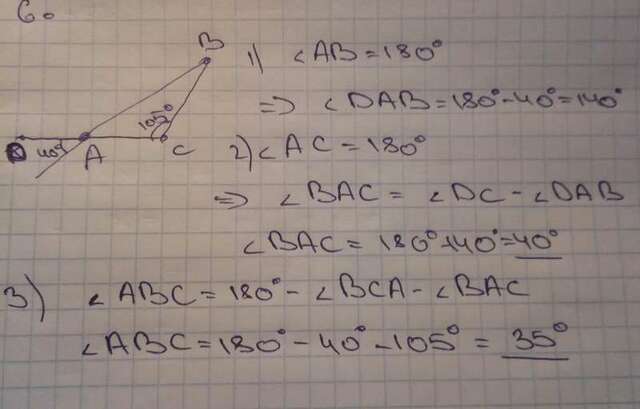 6.
B
105°
D 40° A C
1) ∠AB = 180°
=> ∠DAB = 180° - 40° = 140°
2) ∠AC = 180°
=> ∠BAC = ∠DC - ∠DAB
∠BAC = 180° - 140° = 40°
3) ∠ABC = 180° - ∠BCA - ∠BAC
∠ABC = 180° - 40° - 105° = 35°